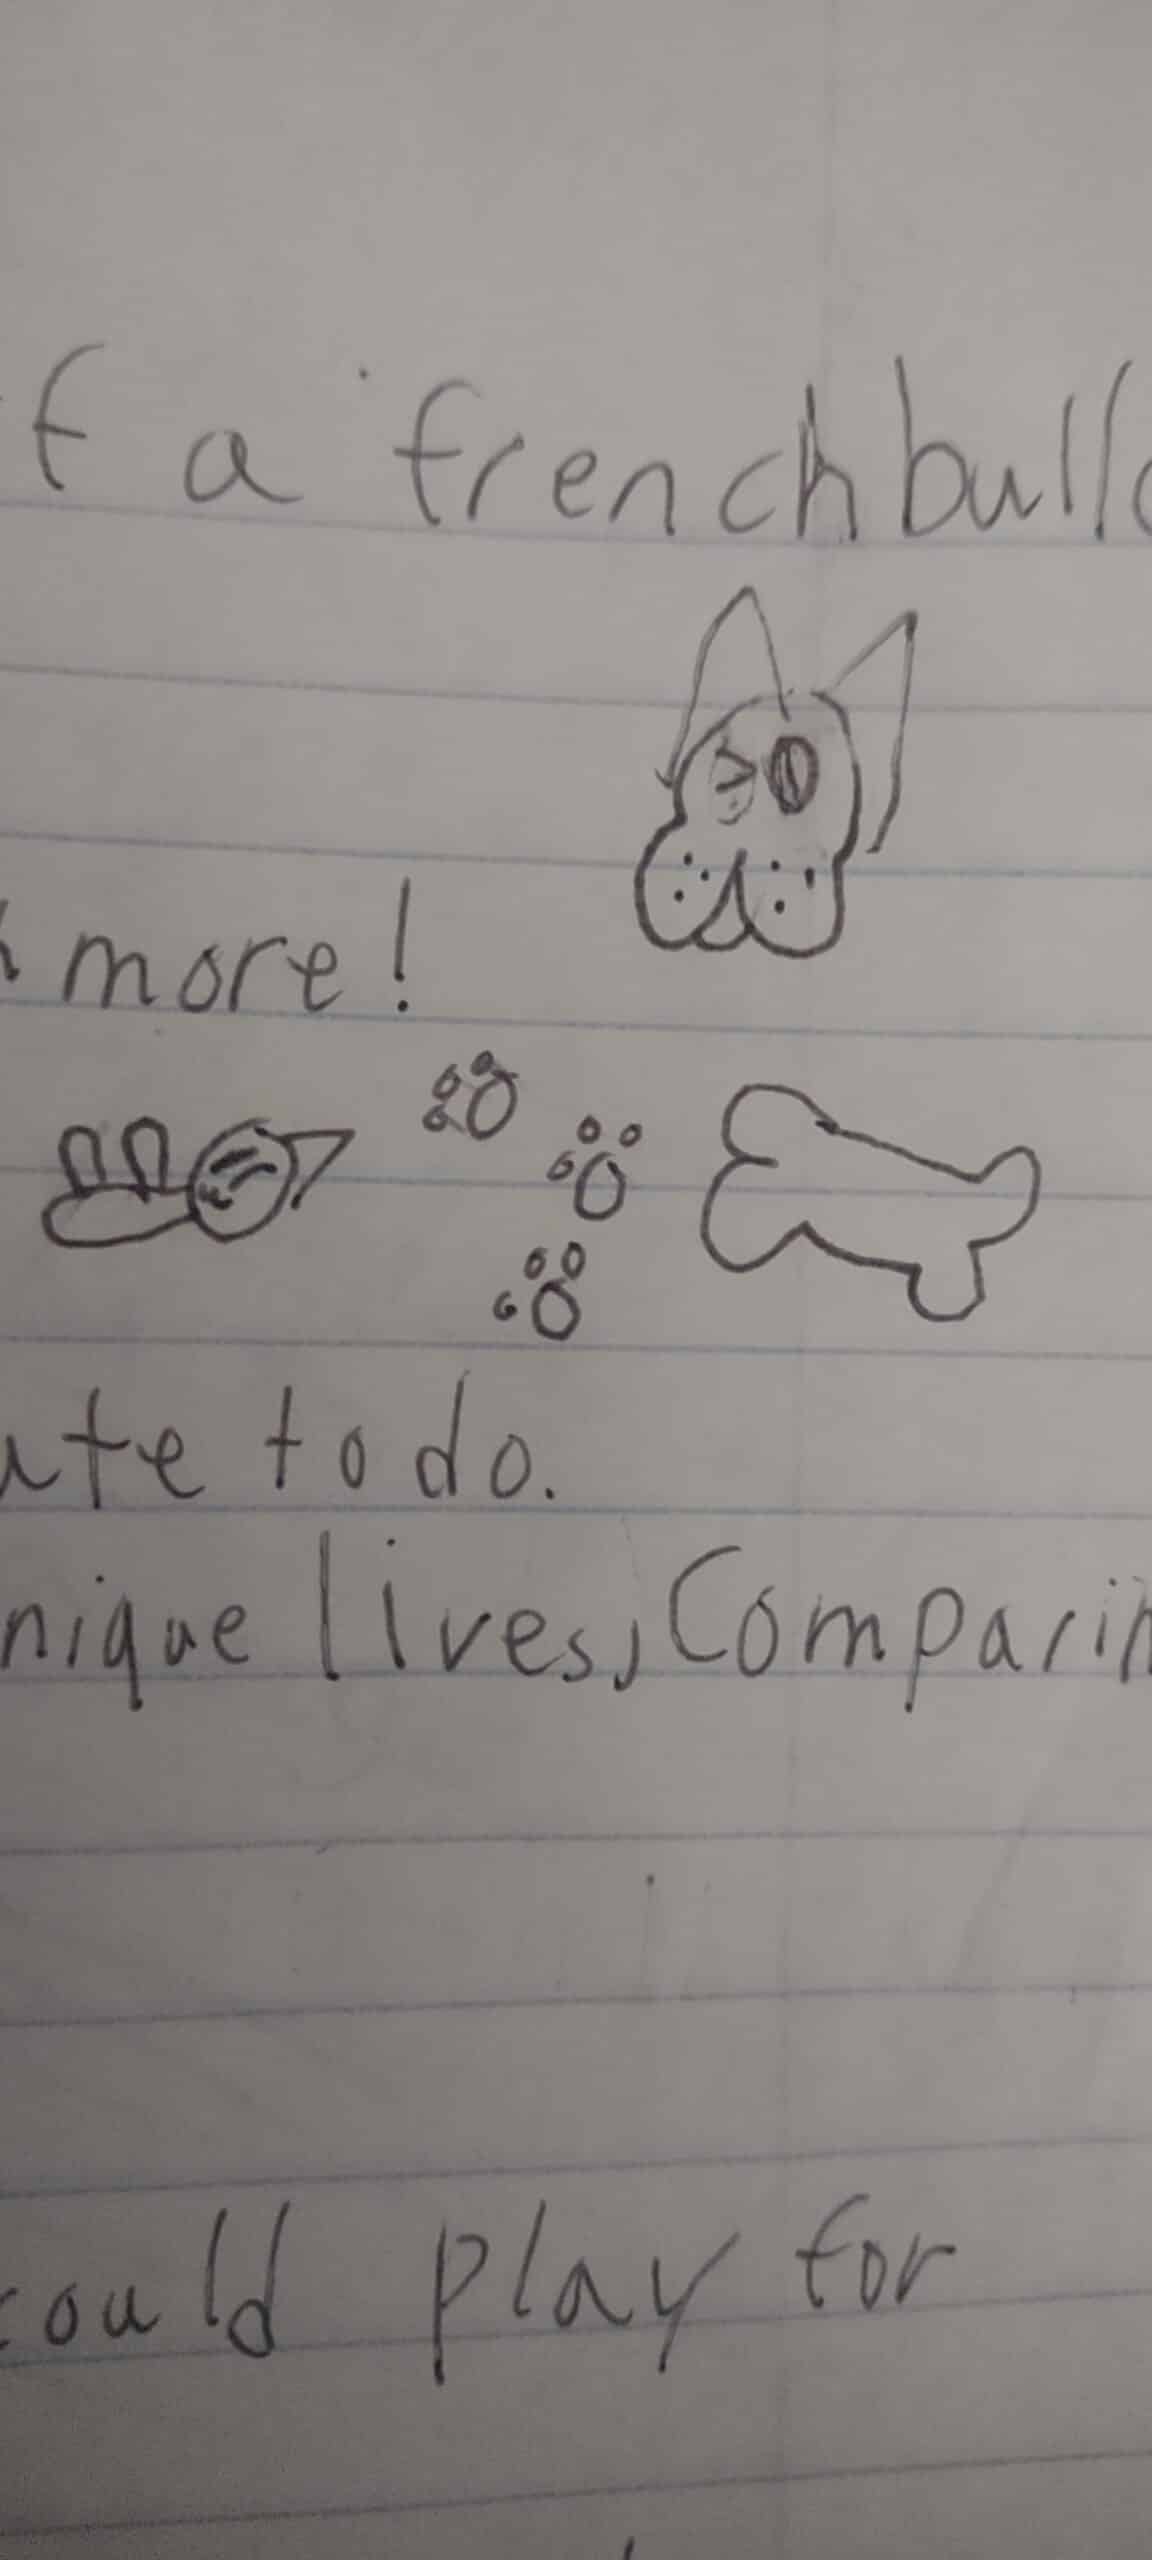 f a french bull
more!
to do.
lives, Comparin
ould play for